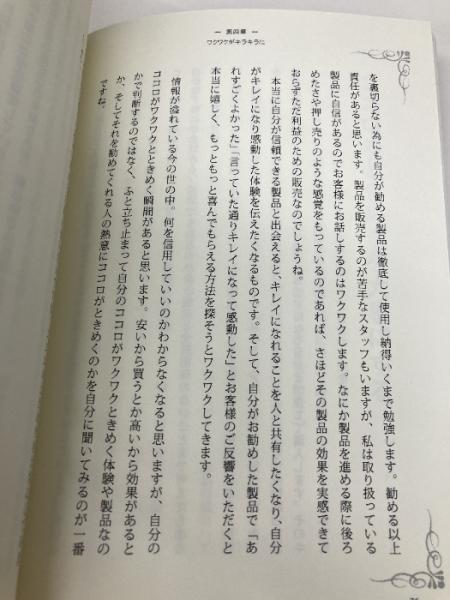 ― 第四章 ―
ワクワクがキラキラに
を裏切らない為にも自分が勧める製品は徹底して使用し納得いくまで勉強します。勧める以上
責任があると思います。製品を販売するのが苦手なスタッフもいますが、私は取り扱っている
製品に自信があるのでお客様にお話しするのはワクワクします。なにか製品を進める際に後ろ
めたさや押し売りのような感覚をもっているのであれば、さほどその製品の効果を実感できて
おらずただ利益のための販売なのでしょうね。
本当に自分が信頼できる製品と出会えると、キレイになれることを人と共有したくなり、自分
がキレイになり感動した体験を伝えたくなるものです。そして、自分がお勧めした製品で「あ
れすごくよかった」「言っていた通りキレイになって感動した」とお客様のご反響をいただくと
本当に嬉しく、もっともっと喜んでもらえる方法を探そうとワクワクしてきます。
情報が溢れている今の世の中。何を信用していいのかわからなくなると思いますが、自分の
ココロがワクワクとときめく瞬間があると思います。安いから買うとか高いから効果があると
かで判断するのではなく、ふと立ち止まって自分のココロがワクワクときめく体験や製品なの
か、そしてそれを勧めてくれる人の熱意にココロがときめくのかを自分に聞いてみるのが一番
ですね。